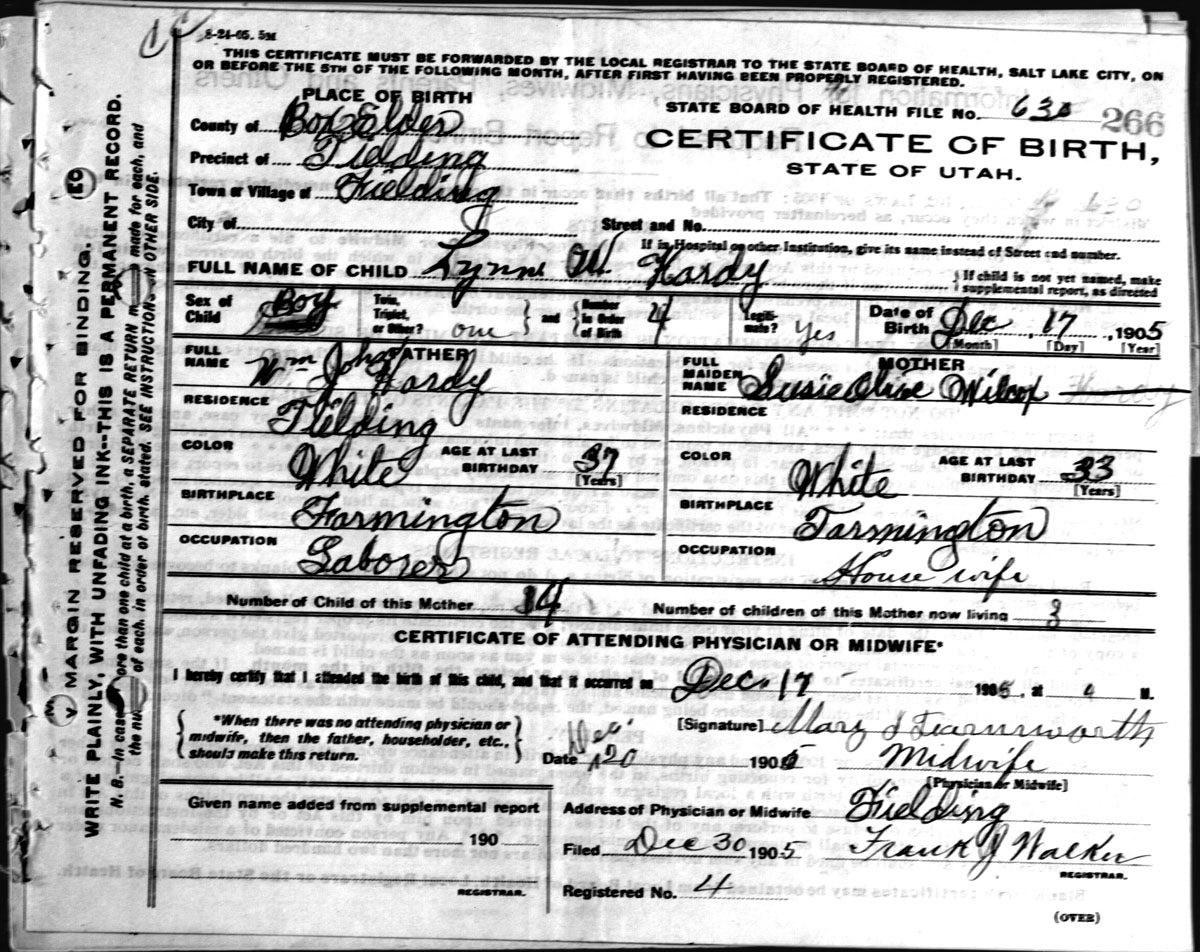 8-24-05. 5M
THIS CERTIFICATE MUST BE FORWARDED BY THE LOCAL REGISTRAR TO THE STATE BOARD OF HEALTH, SALT LAKE CITY, ON
OR BEFORE THE 5TH OF THE FOLLOWING MONTH, AFTER FIRST HAVING BEEN PROPERLY REGISTERED.
PLACE OF BIRTH
STATE BOARD OF HEALTH FILE No. 630 266
County of Box Elder
CERTIFICATE OF BIRTH,
Precinct of Fielding
STATE OF UTAH.
Town or Village of Fielding
City of
Street and No.
If in Hospital or other Institution, give its name instead of Street and number.
FULL NAME OF CHILD Lynne W. Hardy
If child is not yet named, make
supplemental report, as directed
Sex of Child Boy
Twin, Triplet, or Other? one and Number in Order of Birth 4
Legitimate? Yes
Date of Birth Dec 17 1905
[Month] [Day] [Year]
FATHER
FULL NAME Wm Jno Hardy
MOTHER
FULL MAIDEN NAME Susie Olive Wilcox Hardy
RESIDENCE Fielding
RESIDENCE
COLOR White
AGE AT LAST BIRTHDAY 37 [Years]
COLOR White
AGE AT LAST BIRTHDAY 33 [Years]
BIRTHPLACE Farmington
BIRTHPLACE Farmington
OCCUPATION Laborer
OCCUPATION House wife
Number of Child of this Mother 4
Number of children of this Mother now living 3
CERTIFICATE OF ATTENDING PHYSICIAN OR MIDWIFE*
I hereby certify that I attended the birth of this child, and that it occurred on Dec. 17 1905, at 4 M.
*When there was no attending physician or
midwife, then the father, householder, etc.,
should make this return.
[Signature] Mary J Fearnsworth
Date Dec 20 1905
Midwife
[Physician or Midwife]
Given name added from supplemental report
190
REGISTRAR.
Address of Physician or Midwife Fielding
Filed Dec 30 1905 Frank J Walker
REGISTRAR.
Registered No. 4
(OVER)
MARGIN RESERVED FOR BINDING.
WRITE PLAINLY, WITH UNFADING INK--THIS IS A PERMANENT RECORD.
N. B.--In case more than one child at a birth, a SEPARATE RETURN made for each, and
the of each, in order of birth, stated. SEE INSTRUCTIONS ON OTHER SIDE.